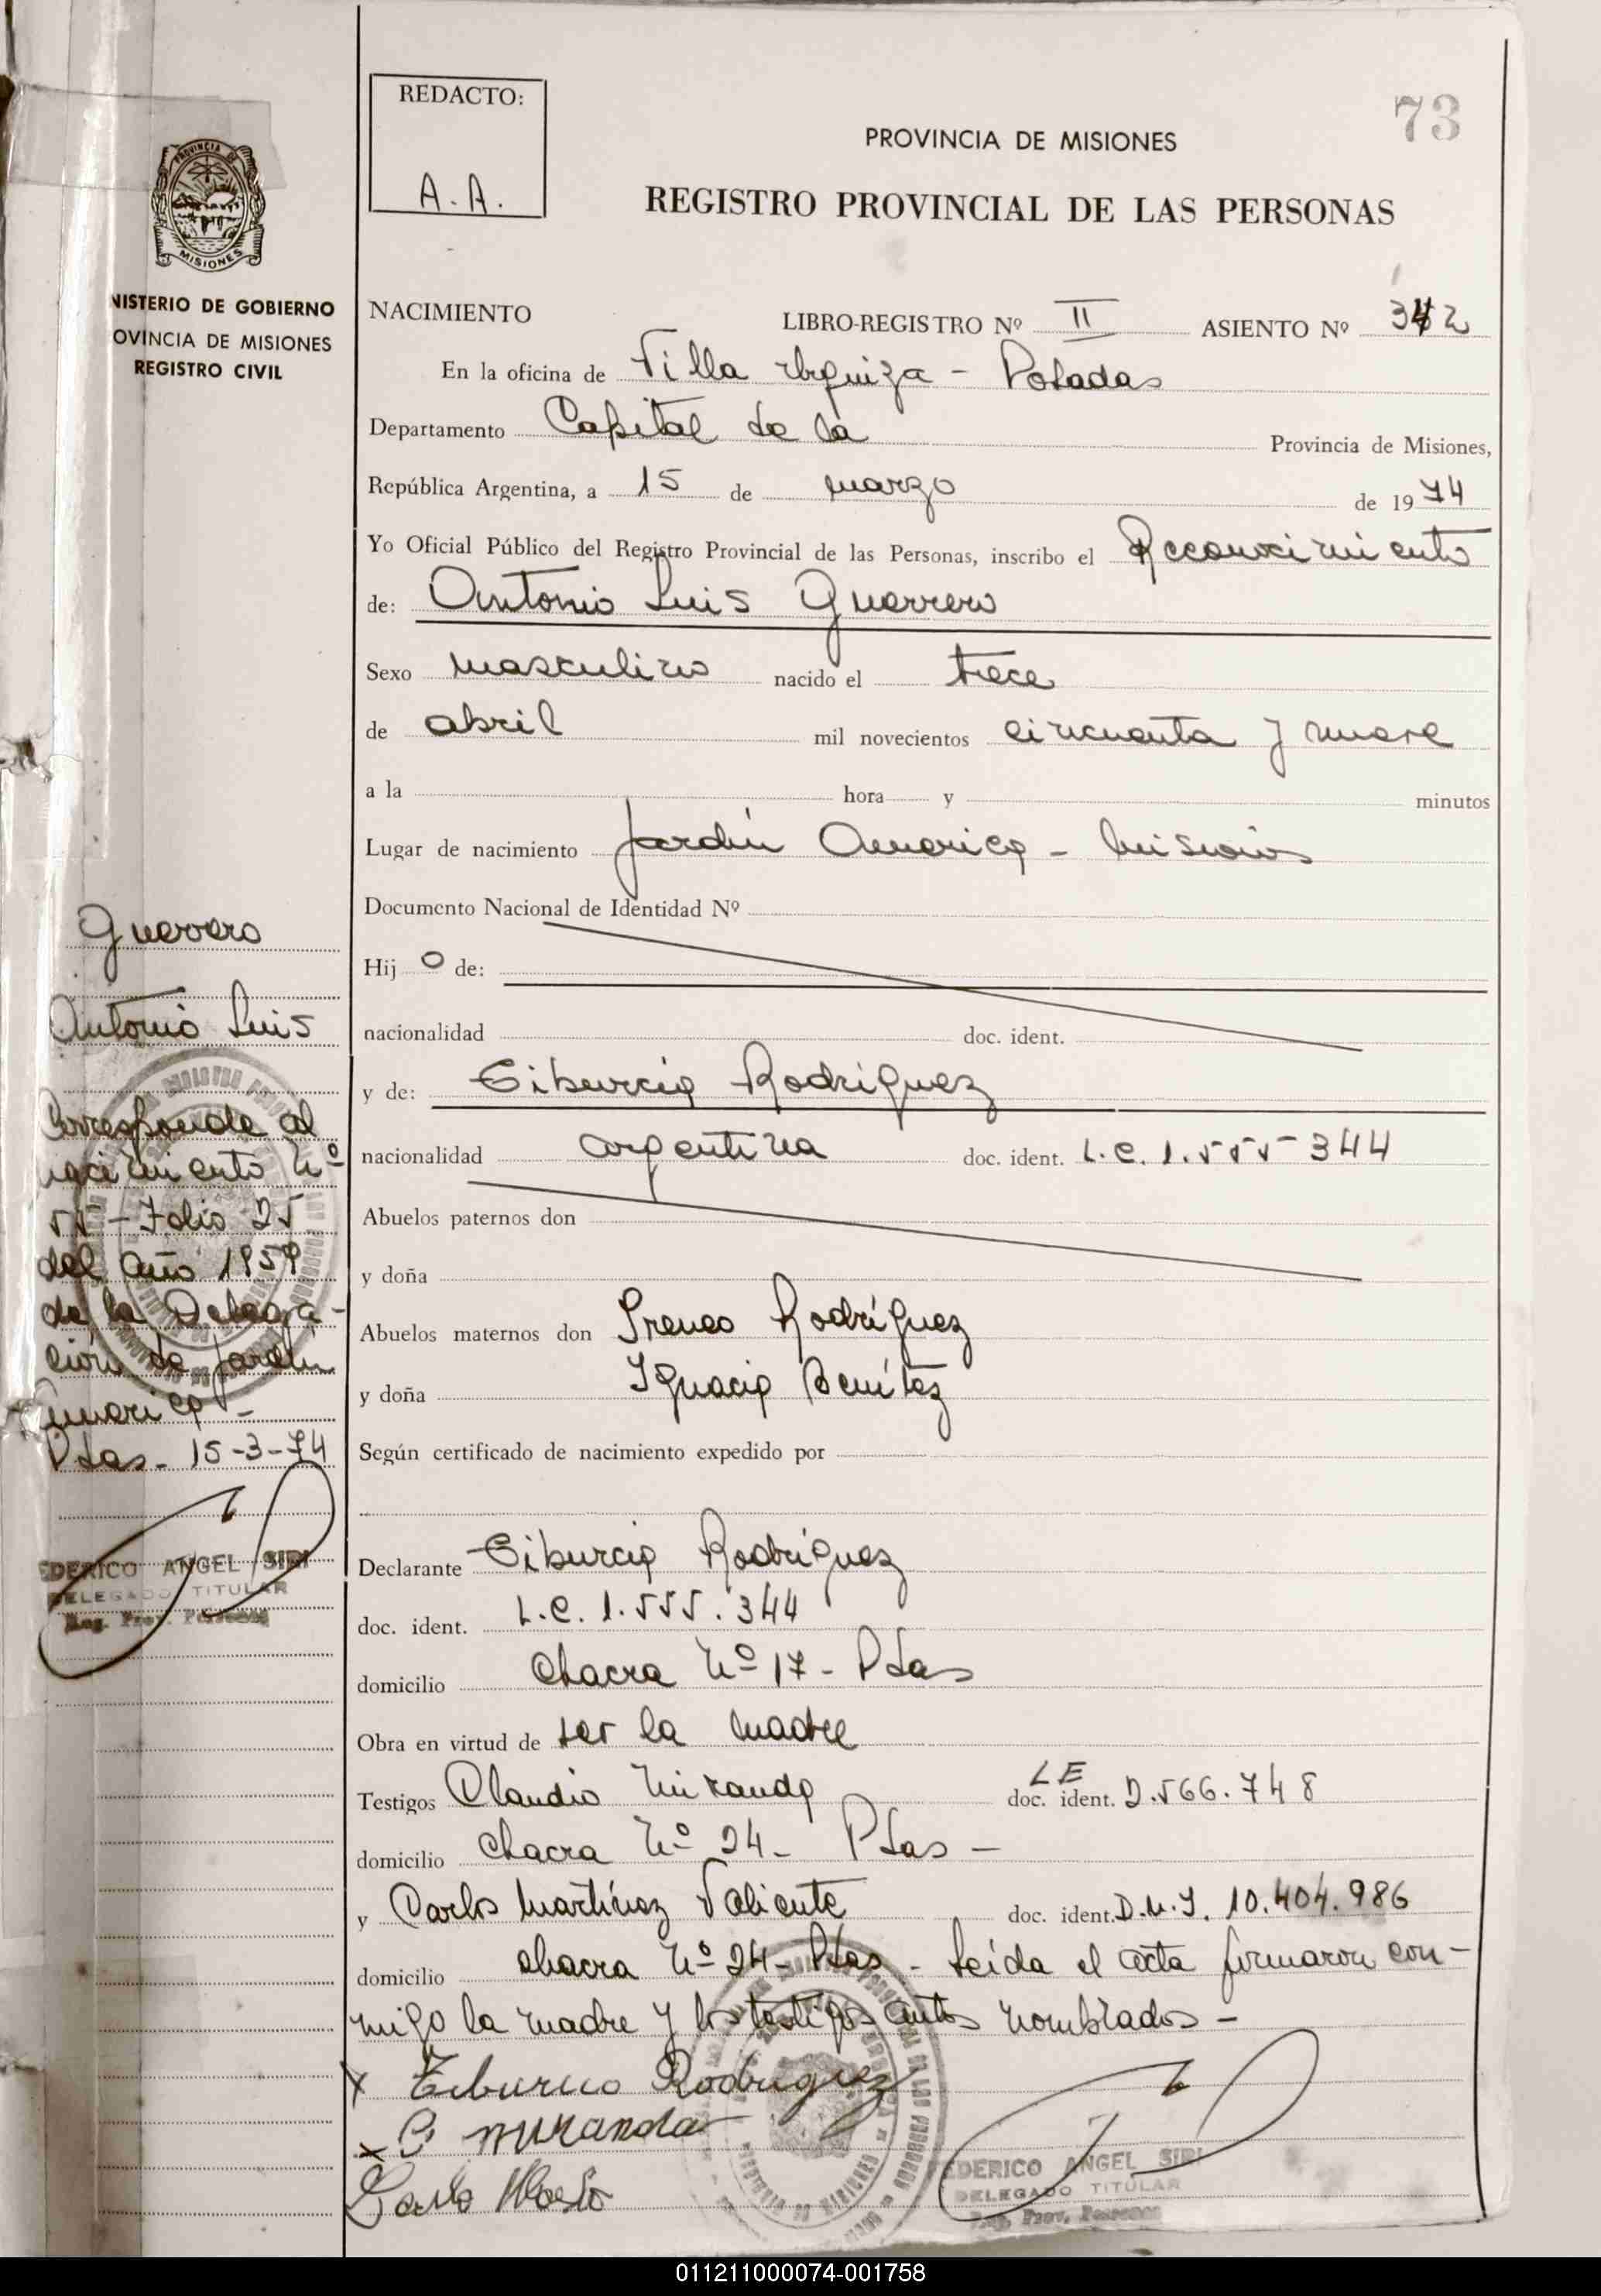 REDACTO:
A.A.
73
PROVINCIA DE MISIONES
REGISTRO PROVINCIAL DE LAS PERSONAS
PROVINCIA DE
MISIONES
NISTERIO DE GOBIERNO
OVINCIA DE MISIONES
REGISTRO CIVIL
NACIMIENTO LIBRO-REGISTRO Nº II ASIENTO Nº 342
En la oficina de Villa Urquiza - Posadas
Departamento Capital de la Provincia de Misiones,
República Argentina, a 15 de marzo de 1974
Yo Oficial Público del Registro Provincial de las Personas, inscribo el Reconocimiento
de: Antonio Luis Guerrero
Sexo masculino nacido el trece
de abril mil novecientos cincuenta y nueve
a la hora y minutos
Lugar de nacimiento Jardín America - Misiones
Documento Nacional de Identidad Nº
Hij o de:
nacionalidad doc. ident.
y de: Tiburcia Rodríguez
nacionalidad argentina doc. ident. L.C. 1.555-344
Abuelos paternos don
y doña
Abuelos maternos don Ireneo Rodríguez
y doña Ignacia Benítez
Según certificado de nacimiento expedido por
Declarante Tiburcia Rodríguez
doc. ident. L.C. 1.555.344
domicilio Chacra Nº 17 - Pdas
Obra en virtud de ser la madre
Testigos Claudio Miranda doc. ident. LE 2.566.748
domicilio Chacra Nº 24 - Pdas -
y Carlos Martínez Valiente doc. ident. D.N.I. 10.404.986
domicilio chacra Nº 24 - Pdas - Leída el acta firmaron con-
migo la madre y los testigos antes nombrados -
x Tiburcio Rodriguez
x C. Miranda
EDERICO ANGEL SIRI
DELEGADO TITULAR
Reg. Prov. Personas
Guerrero
Antonio Luis
Corresponde al
nacimiento Nº
55 - Folio 25
del año 1959
de la Delega-
ción de Jardín
America -
Pdas - 15-3-74
EDERICO ANGEL SIRI
DELEGADO TITULAR
Reg. Prov. Personas
011211000074-001758